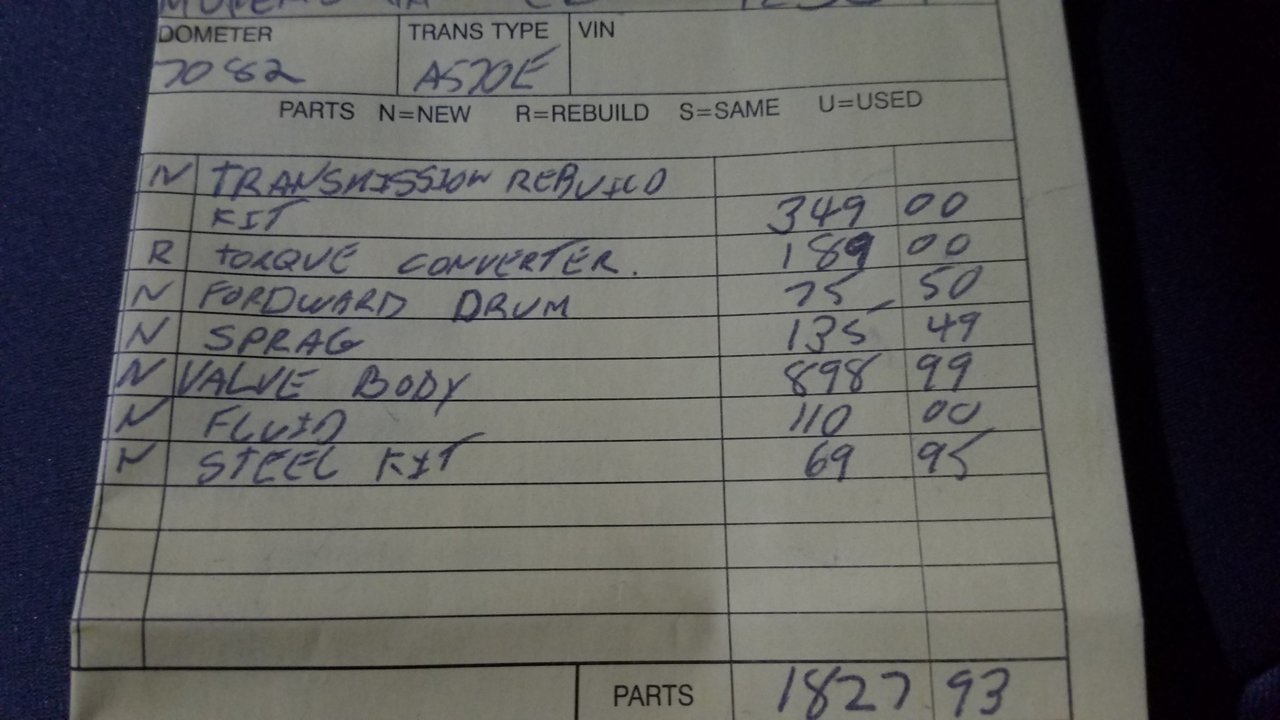 DOMETER TRANS TYPE VIN
7082 A570E
PARTS N=NEW R=REBUILD S=SAME U=USED
N TRANSMISSION REBUILD
KIT 349 00
R TORQUE CONVERTER. 189 00
N FORDWARD DRUM 75 50
N SPRAG 135 49
N VALVE BODY 898 99
N FLUID 110 00
N STEEL KIT 69 95
PARTS 1827 93